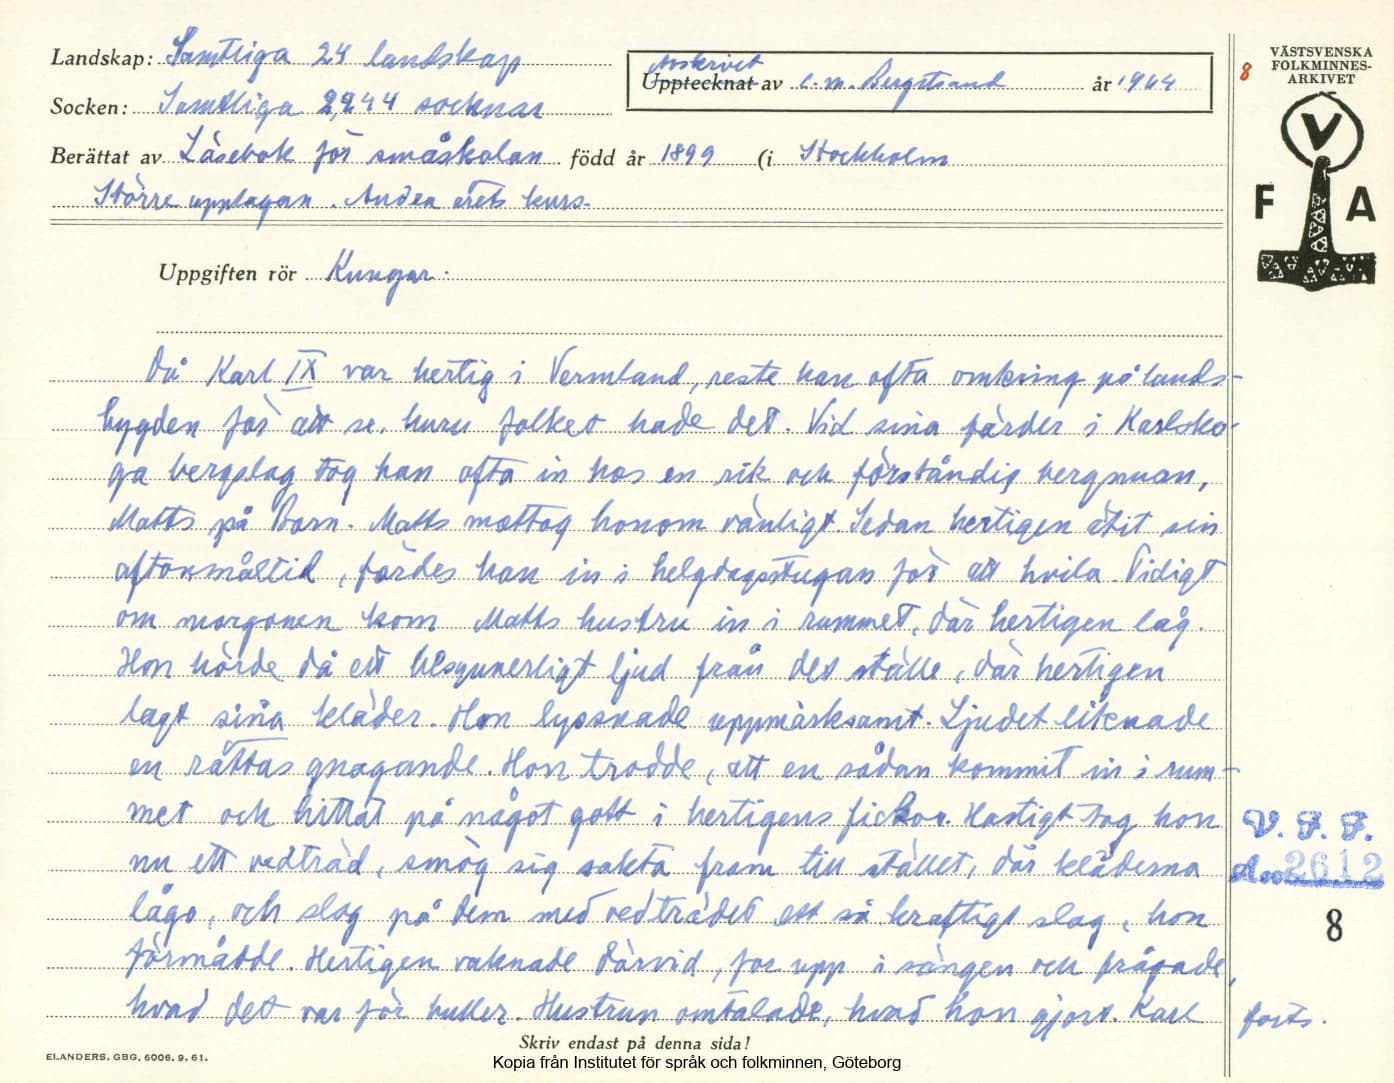 Landskap: Samtliga 24 landskap
Socken: Samtliga 2,244 socknar
Avskrivet
Upptecknat av C. M. Bergstrand år 1964
Berättat av Läsebok för småskolan född år 1899 (i Stockholm
Större upplagan. Andra årets kurs.
8
VÄSTSVENSKA
FOLKMINNES-
ARKIVET
V
F A
Uppgiften rör Kungar.
Då Karl IX var hertig i Vermland, reste han ofta omkring på lands-
bygden för att se, huru folket hade det. Vid sina färder i Karlsko-
ga bergslag tog han ofta in hos en rik och förståndig bergsman,
Matts på Born. Matts mottog honom vänligt. Sedan hertigen ätit sin
aftonmåltid, fördes han in i helgdagsstugan för att hvila. Tidigt
om morgonen kom Matts hustru in i rummet, där hertigen låg.
Hon hörde då ett besynnerligt ljud från det ställe, där hertigen
lagt sina kläder. Hon lyssnade uppmärksamt. Ljudet liknade
en råttas gnagande. Hon trodde, att en sådan kommit in i rum-
met och hittat på något gott i hertigens fickor. Hastigt tog hon
nu ett vedträd, smög sig sakta fram till stället, där kläderna
lågo, och slog på dem med vedträdet ett så kraftigt slag, hon
förmådde. Hertigen vaknade därvid, for upp i sängen och frågade,
hvad det var för buller. Hustrun omtalade, hvad hon gjort. Karl
forts.
V. F. F.
Acc 2612
8
Skriv endast på denna sida!
ELANDERS, GBG, 6006. 9. 61.
Kopia från Institutet för språk och folkminnen, Göteborg